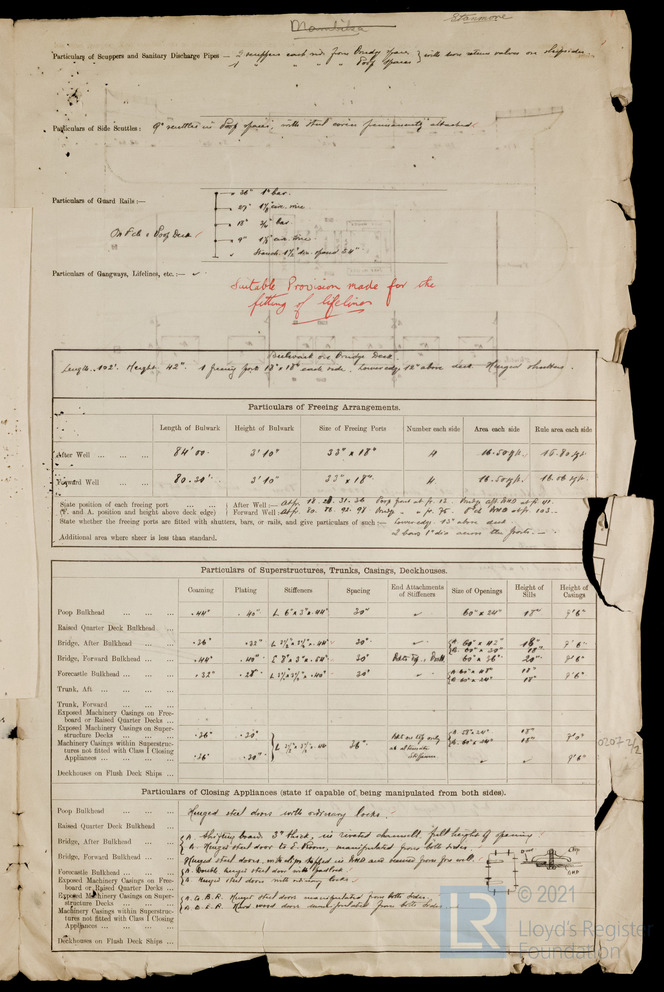 Stanmore
Particulars of Scuppers and Sanitary Discharge Pipes — 2 scuppers each side from Bridge space } with non return valves on shipsides
1 " " " " Poop spaces
Particulars of Side Scuttles: 9" scuttles in Poop spaces, with steel covers permanently attached.
Particulars of Guard Rails:—
1" bar.
27" 1⅛" circ. wire
18" ¾" bar
9" 1⅛" circ. wire
On Fcle & Poop Deck
Stanch. 1½" dia. spaced 54"
Particulars of Gangways, Lifelines, etc.:— ✓
Suitable Provision made for the
fitting of lifelines
Bulwark on Bridge Deck.
Length. 102'. Height. 42". 1 freeing port 18" x 18" each side. Lower edge 12" above deck. Hinged shutters.
Particulars of Freeing Arrangements.
Length of Bulwark Height of Bulwark Size of Freeing Ports Number each side Area each side Rule area each side
After Well ... ... ... 84'.00 3' 10" 33" x 18" 4 16.50 sq.ft. 15.80 sq.ft.
Forward Well ... ... 80.50' 3' 10" 33" x 18" 4 16.50 sq.ft.
State position of each freeing port ... ... } After Well:— At fr. 18. 31. 36 Poop front at fr. 13 Bridge aft. BHD at fr. 41.
(F. and A. position and height above deck edge) } Forward Well: At fr. 80. 86. 92. 98 Bridge " " fr. 75. Fcle BHD at fr. 103
State whether the freeing ports are fitted with shutters, bars, or rails, and give particulars of such:— Lower edge 13" above deck
2 bars 1" dia across the ports.
Additional area where sheer is less than standard.
Particulars of Superstructures, Trunks, Casings, Deckhouses.
Coaming Plating Stiffeners Spacing End Attachments of Stiffeners Size of Openings Height of Sills Height of Casings
Poop Bulkhead ... ... ... .44" .40" L 6" x 3" x .44" 30" ✓ 60" x 24" 18" 7' 6"
Raised Quarter Deck Bulkhead ...
Bridge, After Bulkhead ... ... .36" .32" 30" ✓ 18" 7' 6"
Bridge, Forward Bulkhead ... ... .44" .40" 30" 60" x 36" 20" 7' 6"
Forecastle Bulkhead ... ... ... .32" .28" 30" ✓ 18" 7' 6"
Trunk, Aft ... ... ... ...
Trunk, Forward ... ... ...
Exposed Machinery Casings on Free-
board or Raised Quarter Decks ...
Exposed Machinery Casings on Super-
structure Decks ... ... ... .36" .30" 18" 7' 0"
Machinery Casings within Superstruc-
tures not fitted with Class I Closing
Appliances ... ... ... ... .36" .30" 36" ✓ ✓ 7' 6"
Deckhouses on Flush Deck Ships ...
Particulars of Closing Appliances (state if capable of being manipulated from both sides).
Poop Bulkhead ... ... ... Hinged steel doors with ordinary locks.
Raised Quarter Deck Bulkhead ...
Bridge, After Bulkhead ... ... Shifting boards 3" thick, in riveted channels, full height of opening
Hinged steel door to manipulated from both sides.
Bridge, Forward Bulkhead ... Hinged steel doors.
Forecastle Bulkhead ... ... Double hinged steel door with padlock.
Exposed Machinery Casings on Free-
board or Raised Quarter Decks ... Hinged steel doors with ordinary locks.
Exposed Machinery Casings on Super-
structure Decks ... ... Hinged steel doors manipulated from both sides.
Machinery Casings within Superstruc-
tures not fitted with Class I Closing
Appliances ... ... ... Hard wood doors manipulated from both sides.
Deckhouses on Flush Deck Ships ...
0207 2/2
LR
© 2021
Lloyd's Register
Foundation